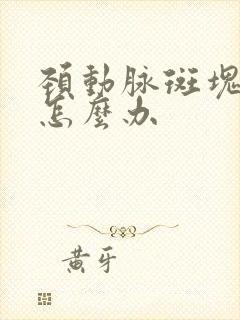 頸動脉斑塊
怎麼办
黄牙